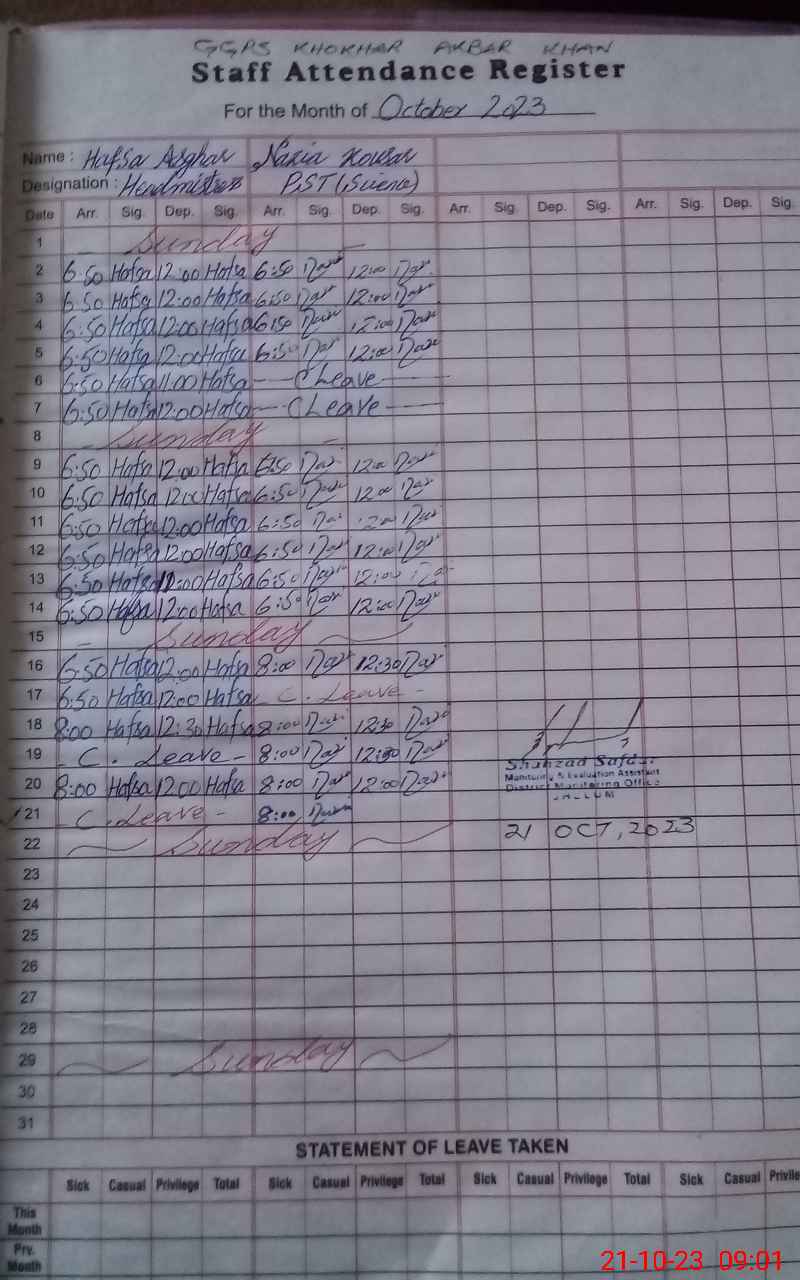 GGPS KHOKHAR AKBAR KHAN
Staff Attendance Register
For the Month of October 2023
Name : Hafsa Asghar Nazia Kousar
Designation : Headmistress PST (Science)
Date Arr. Sig. Dep. Sig. Arr. Sig. Dep. Sig. Arr. Sig. Dep. Sig. Arr. Sig. Dep. Sig.
1 Sunday
2 6:50 Hafsa 12:00 Hafsa 6:50 12:00
3 6:50 Hafsa 12:00 Hafsa 6:50 12:00
4 6:50 Hafsa 12:00 Hafsa 6:50 12:00
5 6:50 Hafsa 12:00 Hafsa 6:50 12:00
6 6:50 Hafsa 11:00 Hafsa - C Leave -
7 6:50 Hafsa 12:00 Hafsa - C Leave -
8 Sunday
9 6:50 Hafsa 12:00 Hafsa 6:50 12:00
10 6:50 Hafsa 12:00 Hafsa 6:50 12:00
11 6:50 Hafsa 12:00 Hafsa 6:50 12:00
12 6:50 Hafsa 12:00 Hafsa 6:50 12:00
13 6:50 Hafsa Hafsa 6:50 12:00
14 6:50 Hafsa 12:00 Hafsa 6:50 12:00
15 Sunday
16 6:50 Hafsa 12:00 Hafsa 8:00 12:30
17 6:50 Hafsa 12:00 Hafsa C. Leave -
18 8:00 Hafsa 12:30 Hafsa 8:00 12:30
19 - C. Leave - 8:00 12:30
20 8:00 Hafsa 12:00 Hafsa 8:00 12:00
Shahzad Safdar
Monitoring & Evaluation Assistant
District Monitoring Office
JHELUM
21 - C. Leave - 8:00
22 Sunday 21 OCT, 2023
23
24
25
26
27
28
29 Sunday
30
31
STATEMENT OF LEAVE TAKEN
Sick Casual Privilege Total Sick Casual Privilege Total Sick Casual Privilege Total Sick Casual Privile
This Month
Prv. Month
21-10-23 09:01